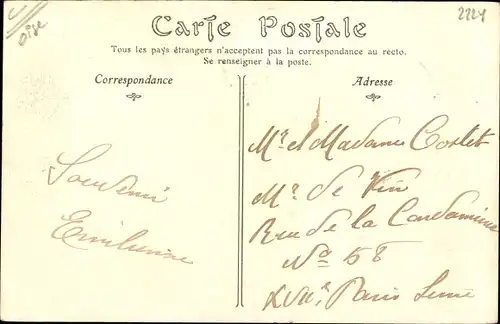 Oise
2224
Carte Postale
Tous les pays étrangers n'acceptent pas la correspondance au recto.
Se renseigner à la poste.
Correspondance
Adresse
Souvenir
Emilienne
Mr. et Madame Costet
Md. de Vin
Rue de la Condamine
No 58
XVIIe. Paris Seine